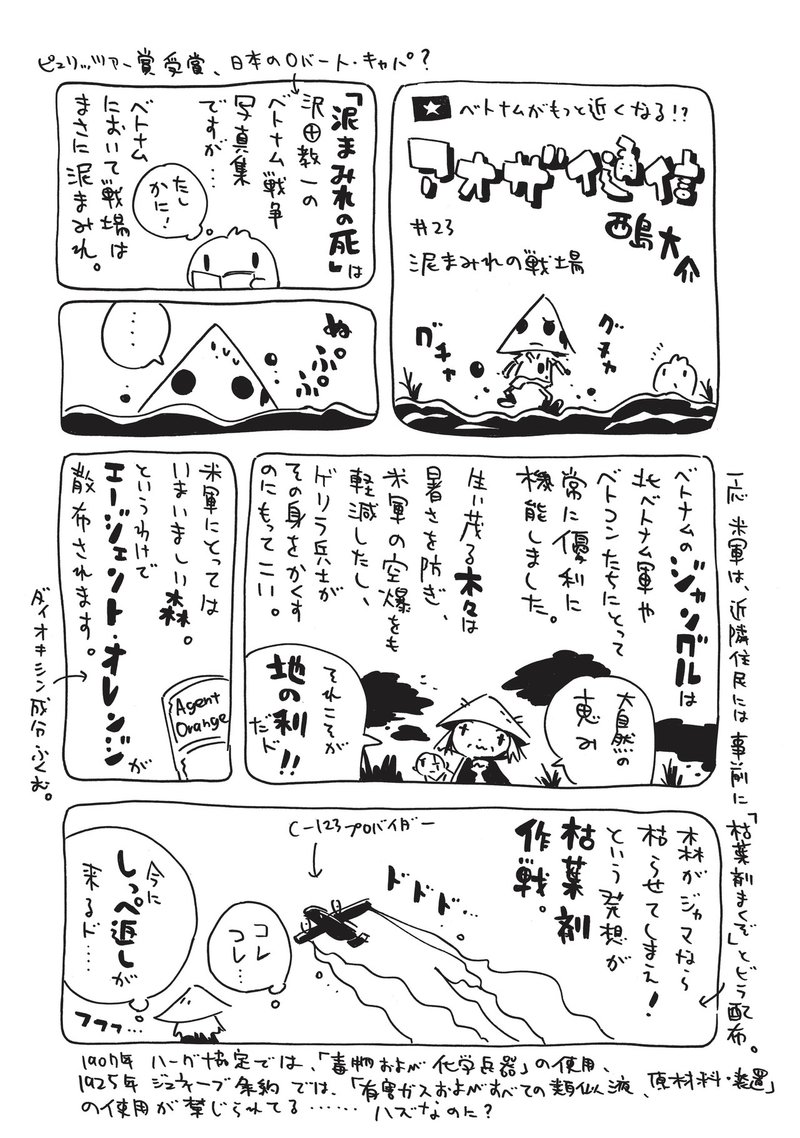 ピュリッツァー賞受賞、日本のロバート・キャパ?
ベトナムがもっと近くなる!?
アオザイ通信
西島大介
#23
泥まみれの戦場
グチャ
グチャ
「泥まみれの死」は
沢田教一の
ベトナム戦争
写真集
ですが…
たし
かに!
ベトナム
において戦場は
まさに泥まみれ。
ぬぷぷぷ
……
ベトナムのジャングルは
北ベトナム軍や
ベトコンたちにとって
常に優利に
機能しました。
生い茂る木々は
暑さを防ぎ、
米軍の空爆をも
軽減したし、
ゲリラ兵士が
その身をかくす
のにもってこい。
大自然の
恵み
それこそが
地の利!!
だド
米軍にとっては
いまいましい森。
というわけで
エージェント・オレンジが
散布されます。
Agent
Orange
ダイオキシン成分ふくむ。
一応米軍は、近隣住民には事前に「枯葉剤まくぞ」とビラ配布。
森がジャマなら
枯らせてしまえ!
という発想が
枯葉剤
作戦。
ドドド…
C-123プロバイダー
コレ
コレ…
今に
しっぺ返しが
来るド…
フフフ…
1907年 ハーグ協定では、「毒物および化学兵器」の使用、
1925年 ジュネーブ条約では、「有害ガスおよびすべての類似液、原材料・装置」
の使用が禁じられてる……ハズなのに?